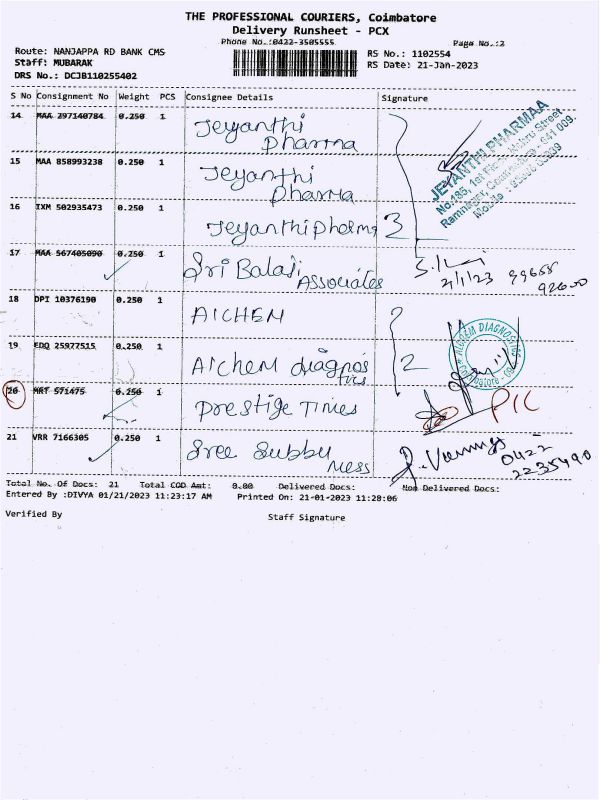 THE PROFESSIONAL COURIERS, Coimbatore
Delivery Runsheet - PCX
Phone No.:0422-3505555
Page No.:2
Route: NANJAPPA RD BANK CMS
Staff: MUBARAK
DRS No.: DCJB110255402
RS No.: 1102554
RS Date: 21-Jan-2023
S No Consignment No Weight PCS Consignee Details Signature
14 MAA 297140784 0.250 1 Jeyanthi
Pharma
15 MAA 858993238 0.250 1 Jeyanthi
Pharma
16 IXM 502935473 0.250 1 Jeyanthi pharma 3
JEYANTHI PHARMAA
17 MAA 567405090 0.250 1 Sri Balaji
Associates
21/1/23 99658
92600
18 DPI 10376190 0.250 1 AICHEM
19 EDQ 25977515 0.250 1 Aichem diagnos
tics
2
20 MRT 571475 0.250 1 Prestige Times
21 VRR 7166305 0.250 1 Sree Subbu
Mess
0422
2235490
Total No. Of Docs: 21 Total COD Amt: 0.00 Delivered Docs: Non Delivered Docs:
Entered By :DIVYA 01/21/2023 11:23:17 AM Printed On: 21-01-2023 11:28:06
Verified By Staff Signature